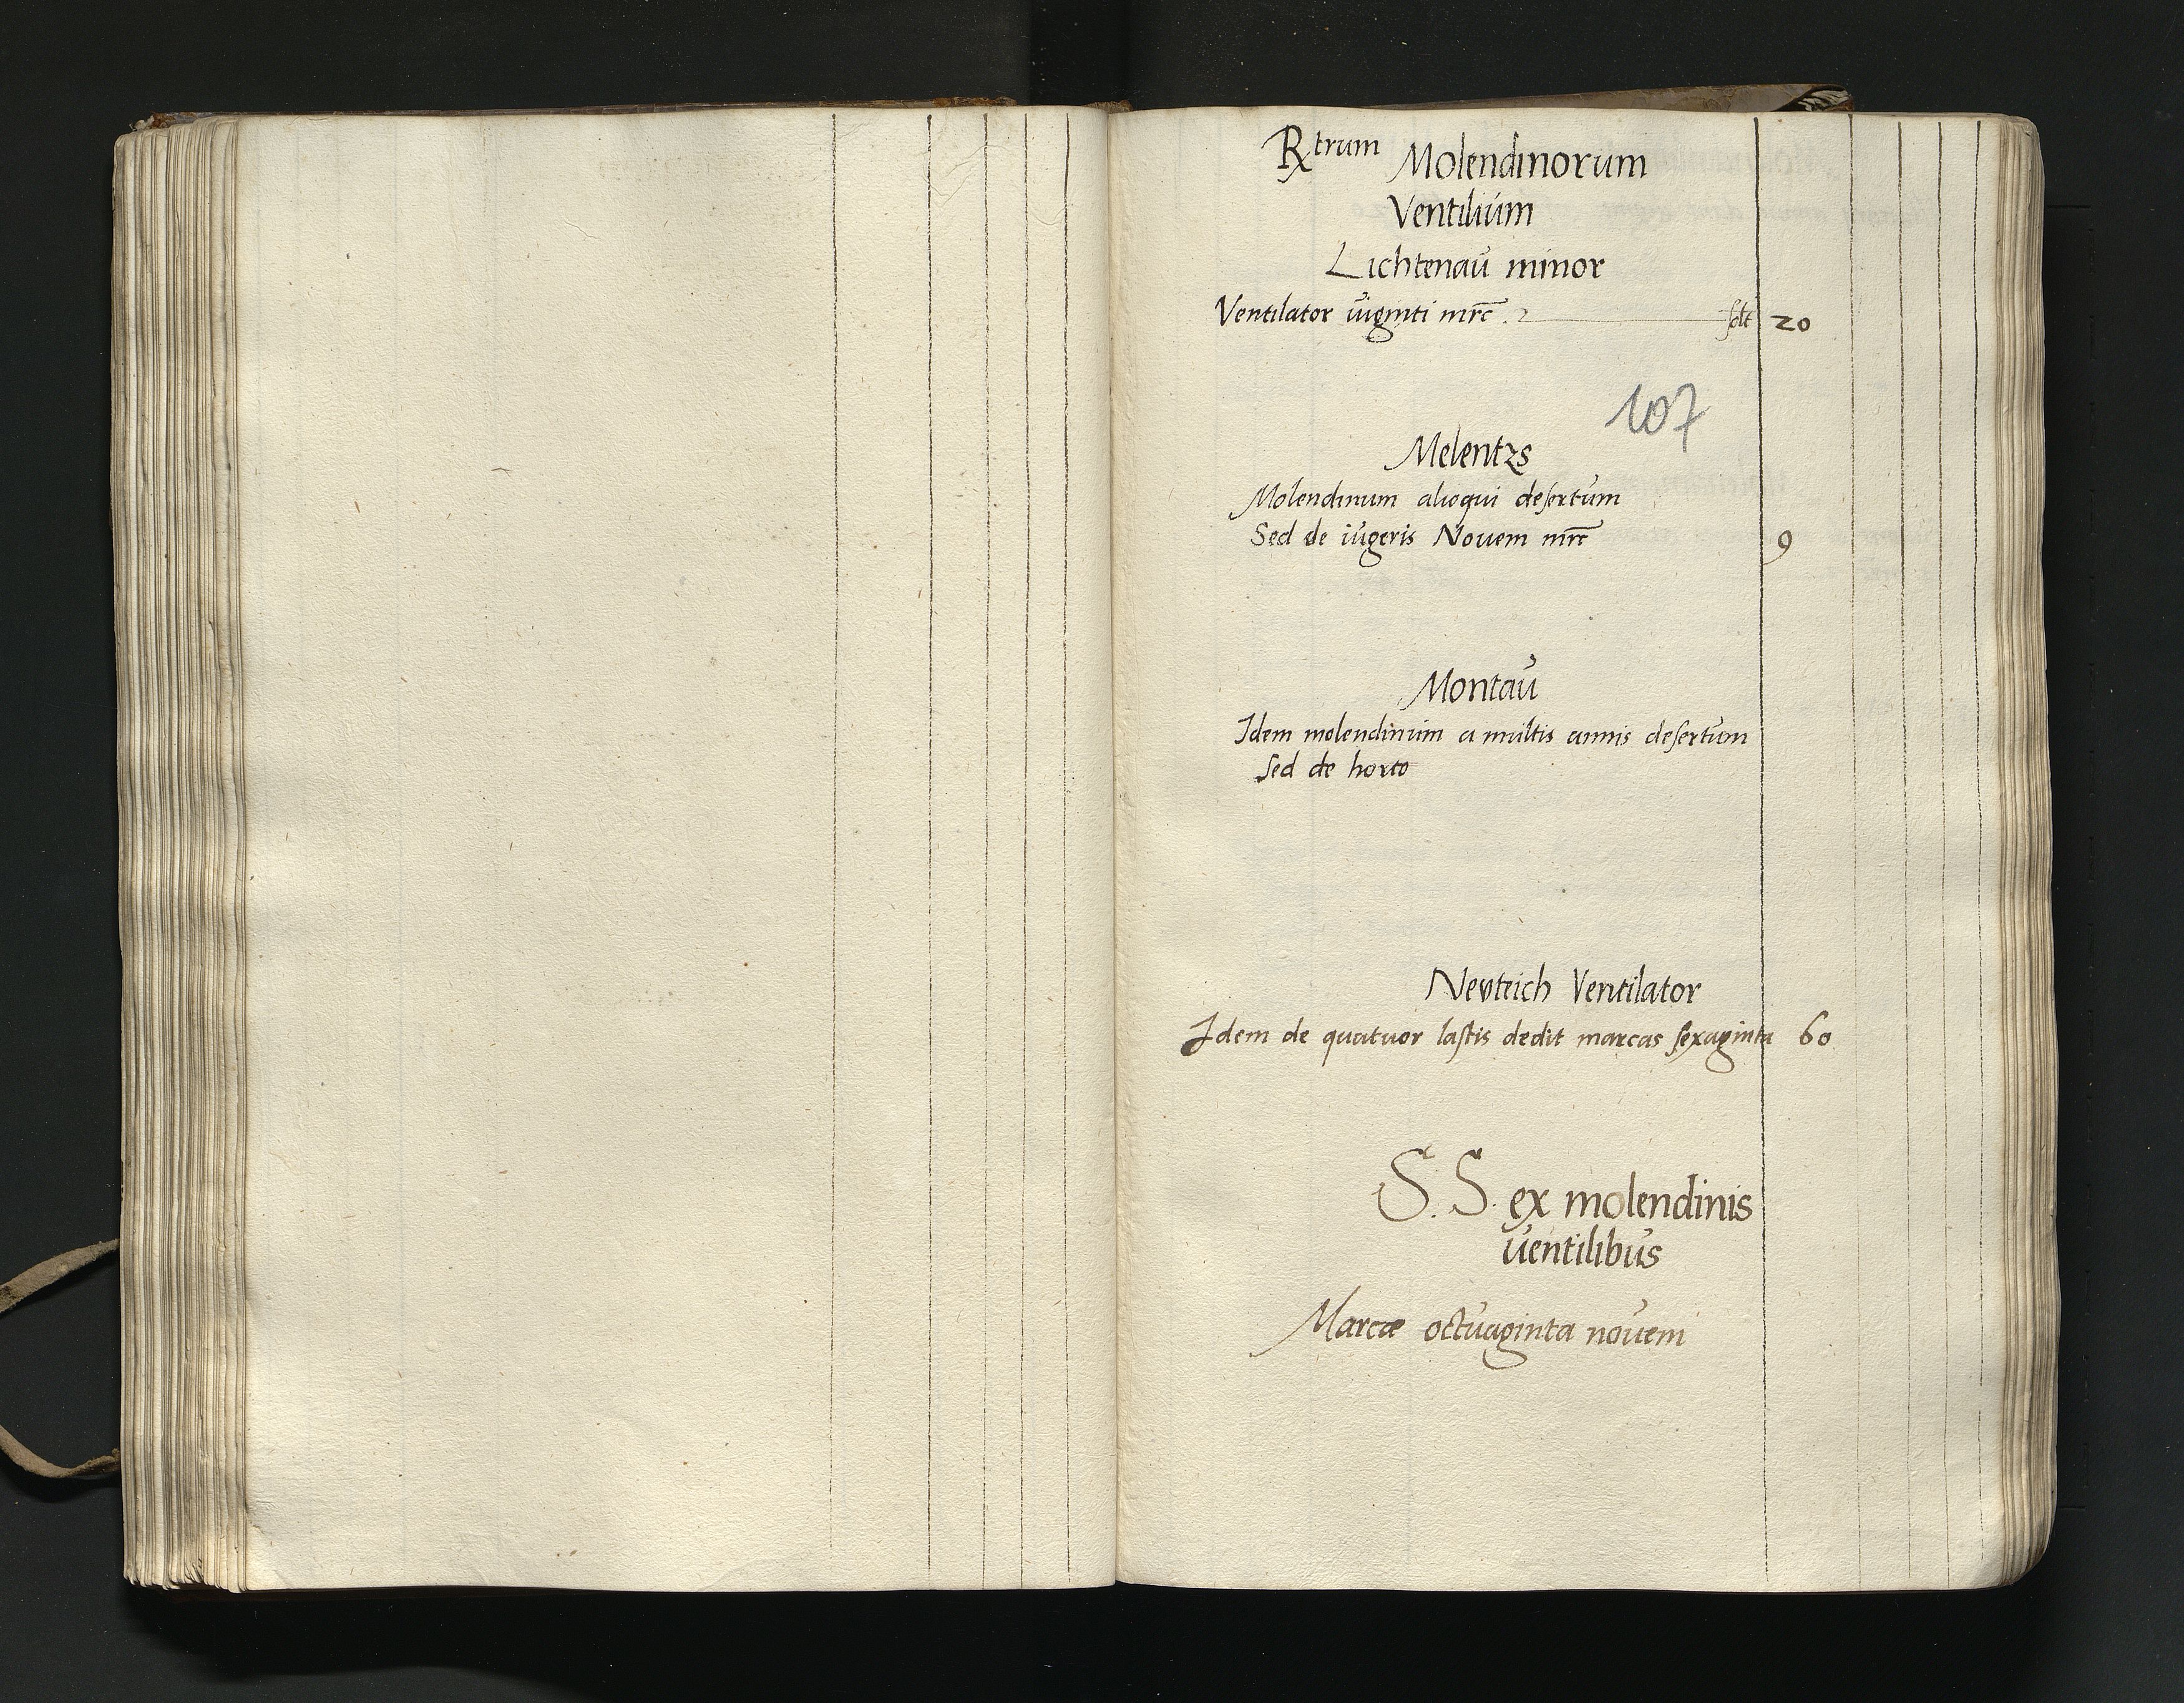 Rtrum Molendinorum
Ventilium
Lichtenau minor
Ventilator viginti mrc solt 20
107
Melentzs
Molendinum alioqui desertum
Sed de iugeris Novem mrc 9
Montau
Idem molendinum a multis annis desertum
sed de horto
Neuteich Ventilator
Idem de quatuor lastis dedit marcas sexaginta 60
S. S. ex molendinis
ventilibus
Marcæ octuaginta novem